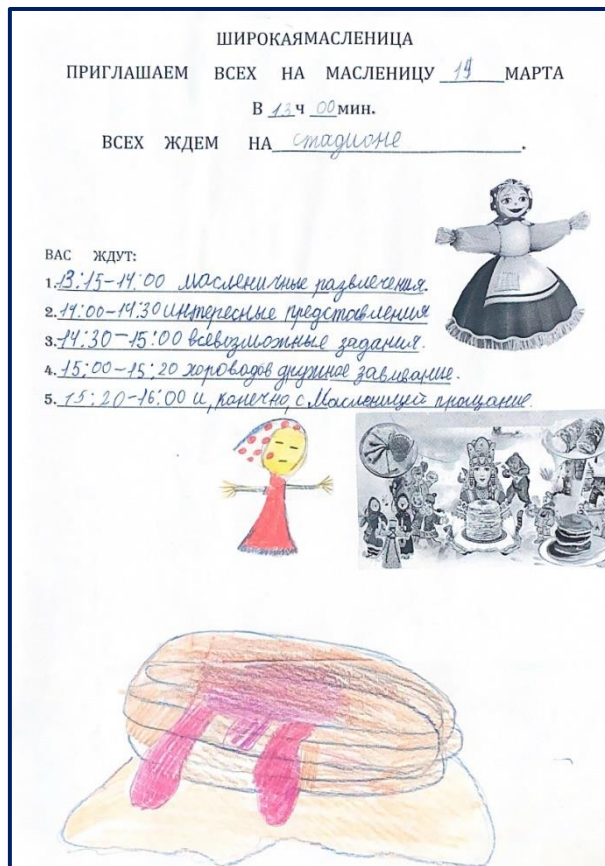 ШИРОКАЯМАСЛЕНИЦА
ПРИГЛАШАЕМ ВСЕХ НА МАСЛЕНИЦУ 14 МАРТА
В 13 ч 00 мин.
ВСЕХ ЖДЕМ НА стадионе.
ВАС ЖДУТ:
1. 13:15-14:00 масленичные развлечения.
2. 14:00-14:30 интересные представления
3. 14:30-15:00 всевозможные задания.
4. 15:00-15:20 хороводов дружное завивание.
5. 15:20-16:00 и, конечно, с Масленицей прощание.